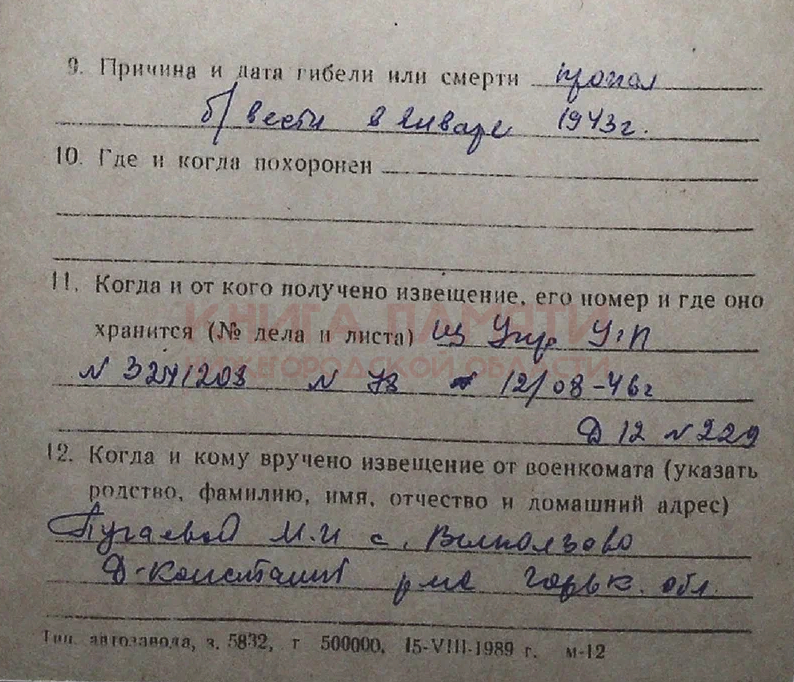 9. Причина и дата гибели или смерти пропал
б/вести в январе 1943г.
10. Где и когда похоронен
11. Когда и от кого получено извещение, его номер и где оно
хранится (№ дела и листа)
КНИГА ПАМЯТИ
НИЖЕГОРОДСКОЙ ОБЛАСТИ
N 78 12/08-46г
Д 12 N 229
12. Когда и кому вручено извещение от военкомата (указать
родство, фамилию, имя, отчество и домашний адрес)
М.И с.
Д-Константин р-на Горьк. обл.
Тип. автозавода, з. 5832, т 500000, 15-VIII-1989 г. м-12